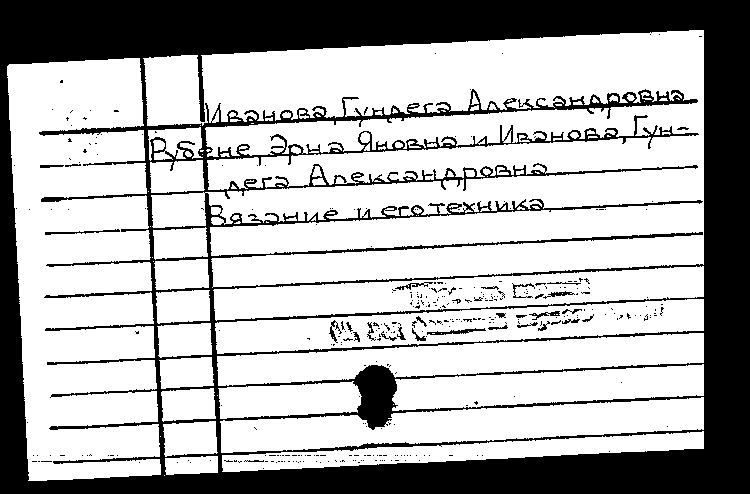 Иванова, Гундега Александровна
Рубене, Эрна Яновна и Иванова, Гун-
дега Александровна
Вязание и его техника